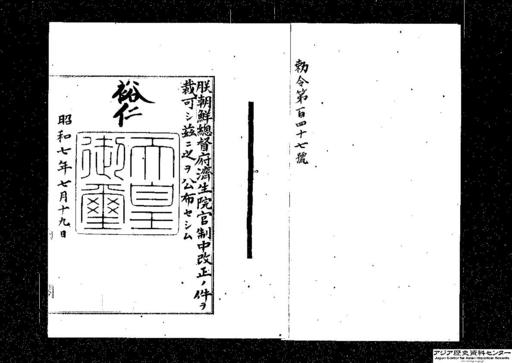 勅令第百四十七號
朕朝鮮總督府濟生院官制中改正ノ件ヲ
裁可シ茲ニ之ヲ公布セシム
裕仁
天皇
御璽
昭和七年七月十九日
アジア歴史資料センター
Japan Center for Asian Historical Records